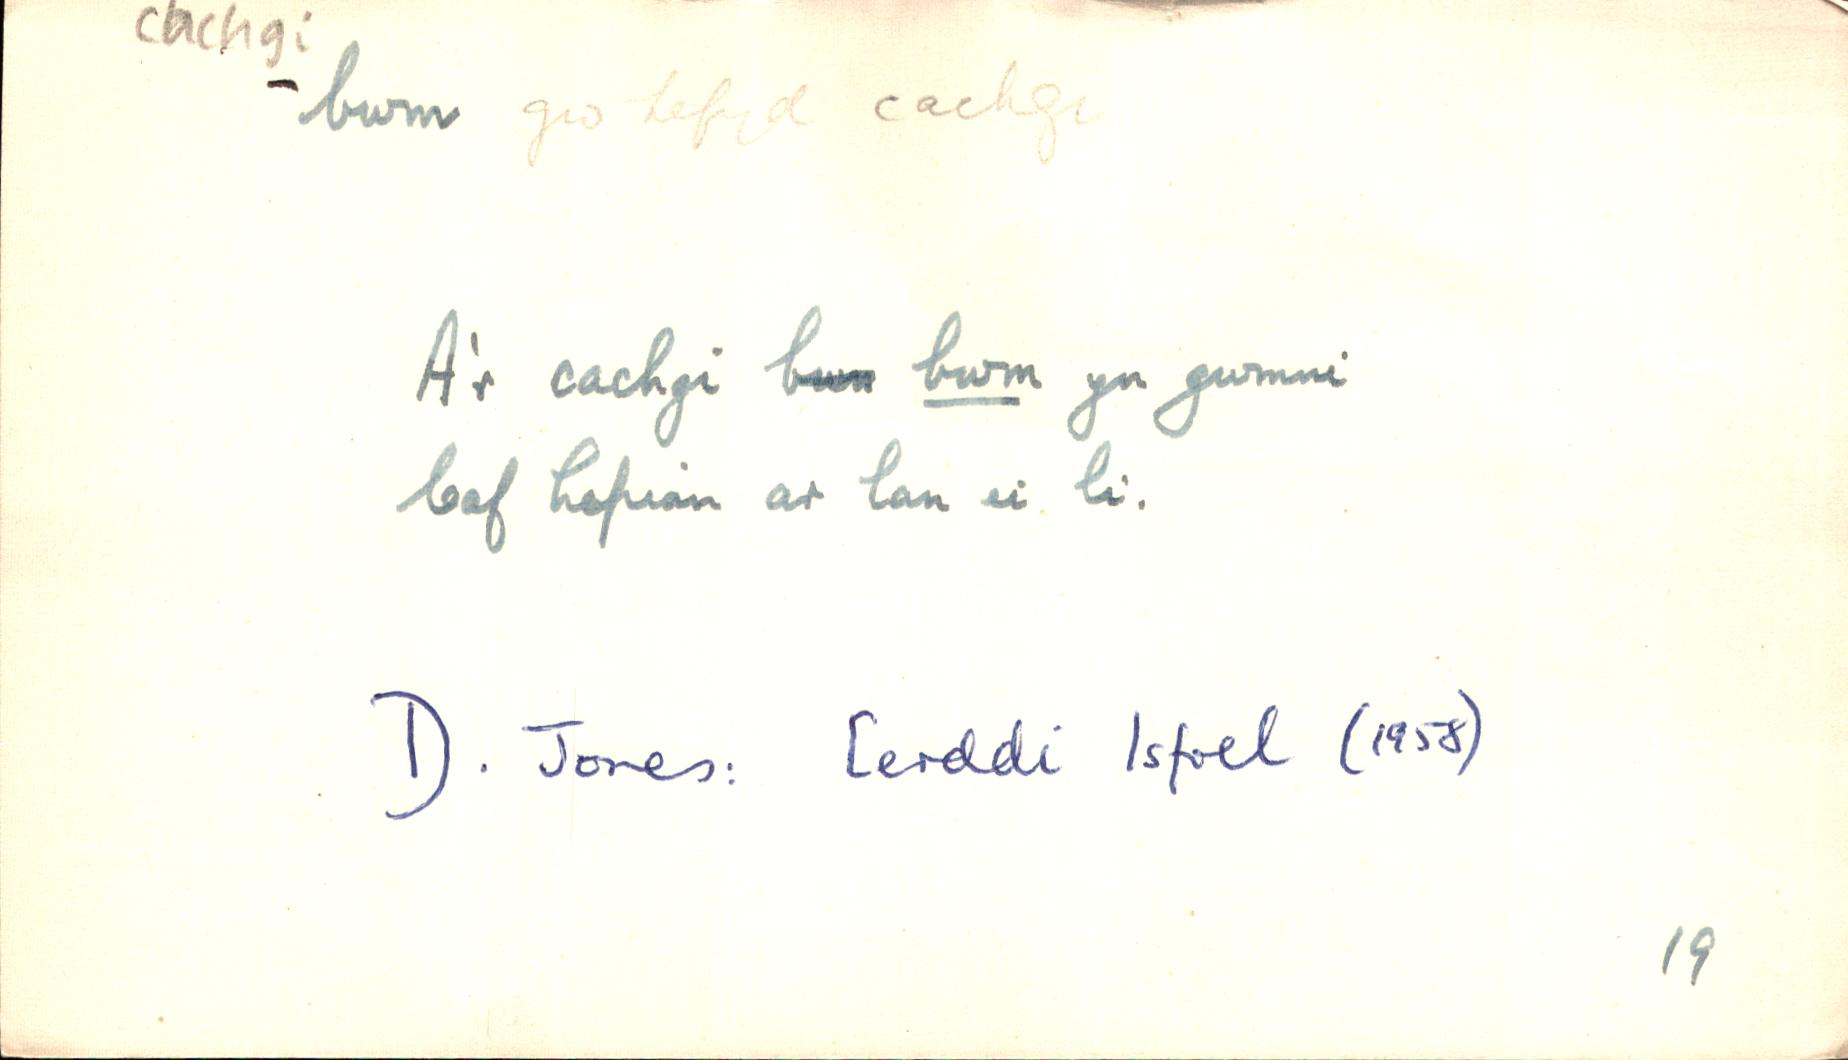 cachgi
-bwm gw hefyd cachgi
A'r cachgi bwn bwm yn gwmni
Caf hepian ar lan ei li.
D. Jones: Cerddi Isfoel (1958)
19